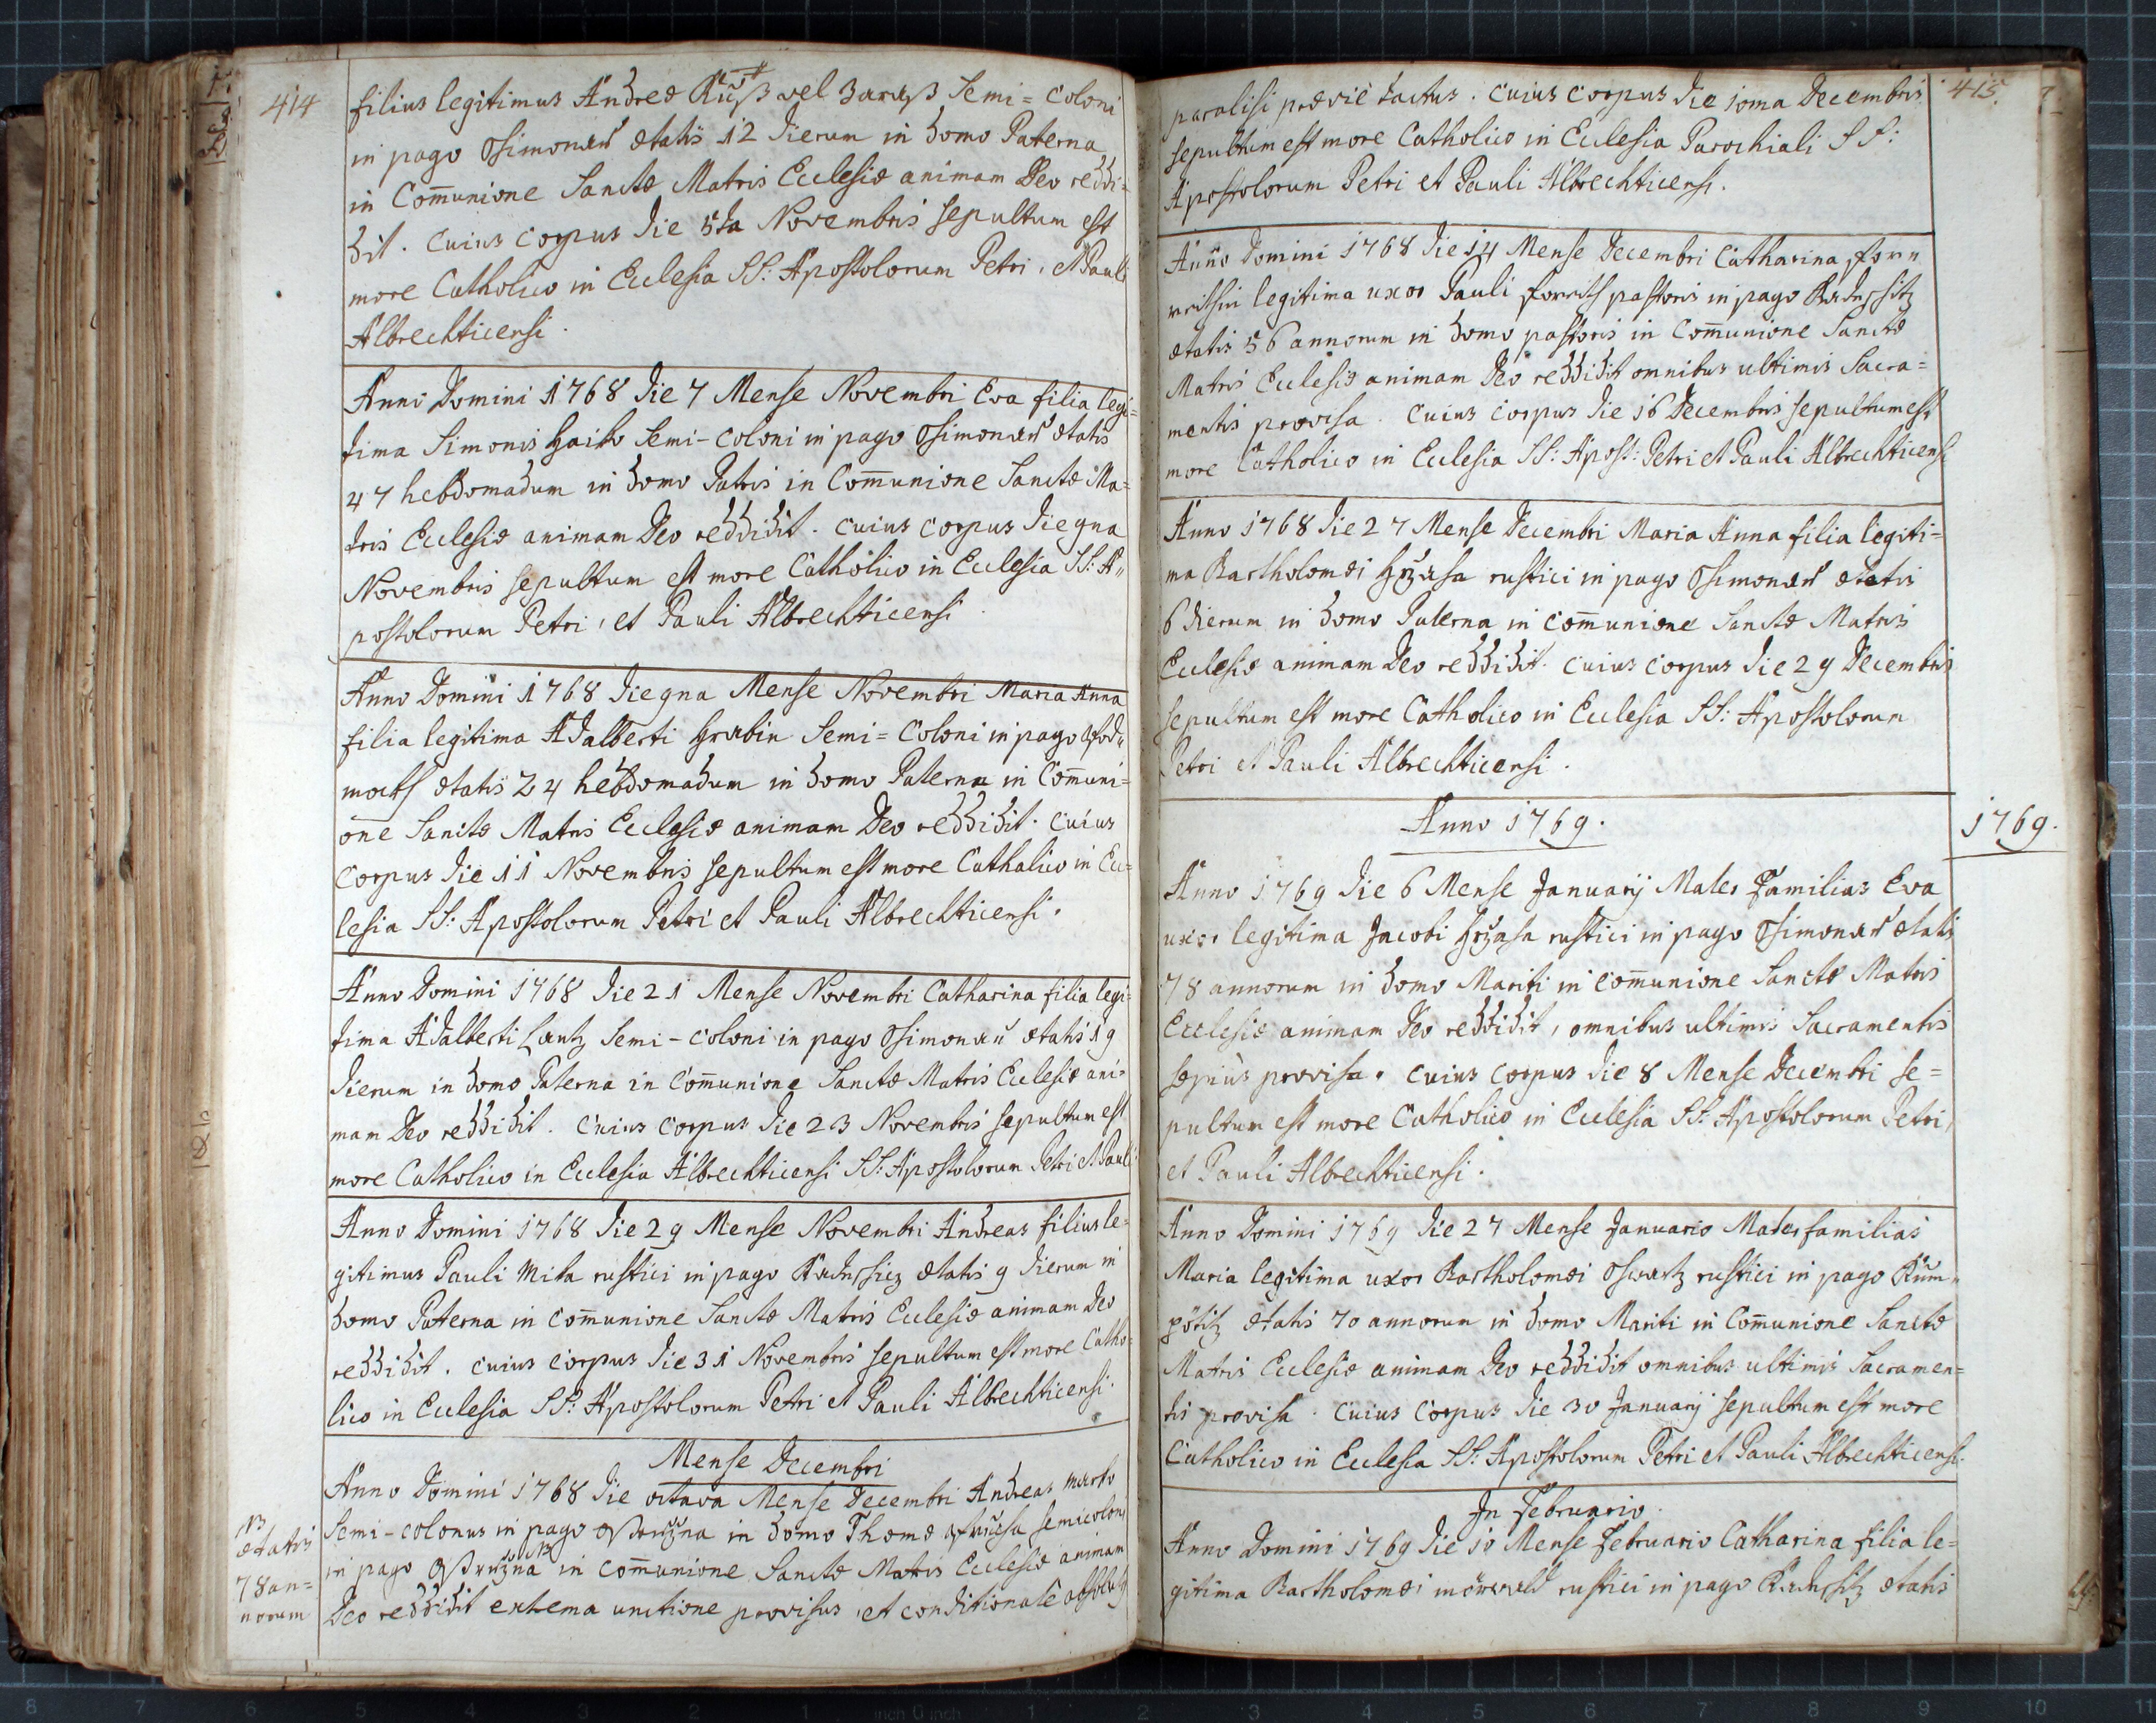 414
filius legitimus Andreæ Kuß vel Baraß Semi=Coloni
in pago Osimonaÿ ætatis 12 dierum in domo Paterna
in Com̄unione Sanctæ Matris Ecclesiæ animam Deo reddi=
dit. Cuius Corpus die 5ta Novembris sepultum est
more Catholico in Ecclesia SS: Apostolorum Petri, et Pauli
Albrechticensi.
Anno Domini 1768 die 7 Mense Novembri Eva filia legi=
tima Simonis Haiko Semi-Coloni in pago Osimonaÿ ætatis
47 hebdomadum in domo Patris in Com̄unione Sanctæ Ma=
tris Ecclesiæ animam Deo reddidit. Cuius Corpus die 9na
Novembris sepultum est more Catholico in Ecclesia SS: A„
postolorum Petri, et Pauli Albrechticensi.
Anno Domini 1768 die 9na Mense Novembri Maria Anna
filia legitima Adalberti Grabin Semi=Coloni in pago
ætatis 24 hebdomadum in domo Paterna in Com̄uni=
one Sanctæ Matris Ecclesiæ animam Deo reddidit. Cuius
Corpus die 11 Novembris sepultum est more Catholico in Ec=
lesia SS: Apostolorum Petri et Pauli Albrechticensi.
Anno Domini 1768 die 21 Mense Novembri Catharina filia legi=
tima Adalberti Lantz Semi-Coloni in pago Osimonaÿ ætatis 19
dierum in domo Paterna in Com̄unione Sanctæ Matris Ecclesiæ ani=
mam Deo reddidit. Cuius Corpus die 23 Novembris sepultum est
more Catholico in Ecclesia Albrechticensi SS: Apostolorum Petri et Pauli
Anno Domini 1768 die 29 Mense Novembri Andreas filius le=
gitimus Pauli Mika rustici in pago ætatis 9 dierum in
domo Paterna in Com̄unione Sanctæ Matris Ecclesiæ animam Deo
reddidit. Cuius Corpus die 31 Novembris sepultum est more Catho=
lico in Ecclesia SS: Apostolorum Petri et Pauli Albrechticensi.
Mense Decembri
Anno Domini 1768 die octava Mense Decembri Andreas
Semi-colonus in pago in domo Thomæ semicoloni
in pago in Com̄unione Sanctæ Matris Ecclesiæ animam
Deo reddidit extrema unctione provisus, et conditionate absolutg
NB
ætatis
78 an=
norum
415.
paralisi prævie tactus. Cuius Corpus die 10ma Decembris
sepultum est more Catholico in Ecclesia Parochiali SS:
Apostolorum Petri et Pauli Albrechticensi.
Anno Domini 1768 die 14 Mense Decembri Catharina
legitima uxor Pauli pastoris in pago
ætatis 56 annorum in domo pastoris in Com̄unione Sanctæ
Matris Ecclesiæ animam Deo reddidit omnibus ultimis Sacra=
mentis provisa. Cuius Corpus die 16 Decembris sepultum est
more Catholico in Ecclesia SS: Apost: Petri et Pauli Albrechticensi
Anno 1768 die 27 Mense Decembri Maria Anna filia legiti=
ma Bartholomæi Hrzasa rustici in pago Osimonaÿ ætatis
6 dierum in domo Paterna in com̄unione Sanctæ Matris
Ecclesiæ animam Deo reddidit. Cuius Corpus die 29 Decembris
sepultum est more Catholico in Ecclesia SS: Apostolorum
Petri et Pauli Albrechticensi.
Anno 1769.
1769.
Anno 1769 die 6 Mense Januarij Mater Familias Eva
uxor legitima Jacobi Hrzasa rustici in pago Osimonaÿ ætatis
78 annorum in domo Mariti in com̄unione Sanctæ Matris
Ecclesiæ animam Deo reddidit, omnibus ultimis Sacramentis
sæpiùs provisa. Cuius Corpus die 8 Mense Decembri se=
pultum est more Catholico in Ecclesia SS: Apostolorum Petri,
et Pauli Albrechticensi.
Anno Domini 1769 die 27 Mense Januario Mater familias
Maria legitima uxor Bartholomæi rustici in pago
ætatis 70 annorum in domo Mariti in Com̄unione Sanctæ
Matris Ecclesiæ animam Deo reddidit omnibus ultimis Sacramen=
tis provisa. Cuius Corpus die 30 Januarij sepultum est more
Catholico in Ecclesia SS: Apostolorum Petri et Pauli Albrechticensi.
In Februario.
Anno Domini 1769 die 10 Mense Februario Catharina filia le=
gitima Bartholomæi rustici in pago ætatis